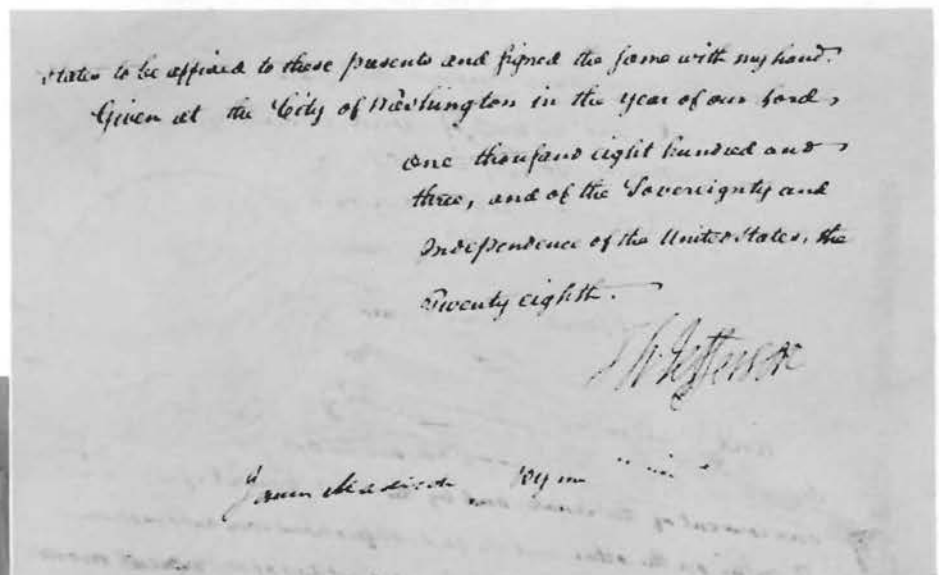 states to be affixed to these presents and signed the same with my hand.
Given at the City of Washington in the year of our Lord,
one thousand eight hundred and
three, and of the Sovereignty and
Independence of the United States, the
Twenty eighth.
Th Jefferson
James Madison